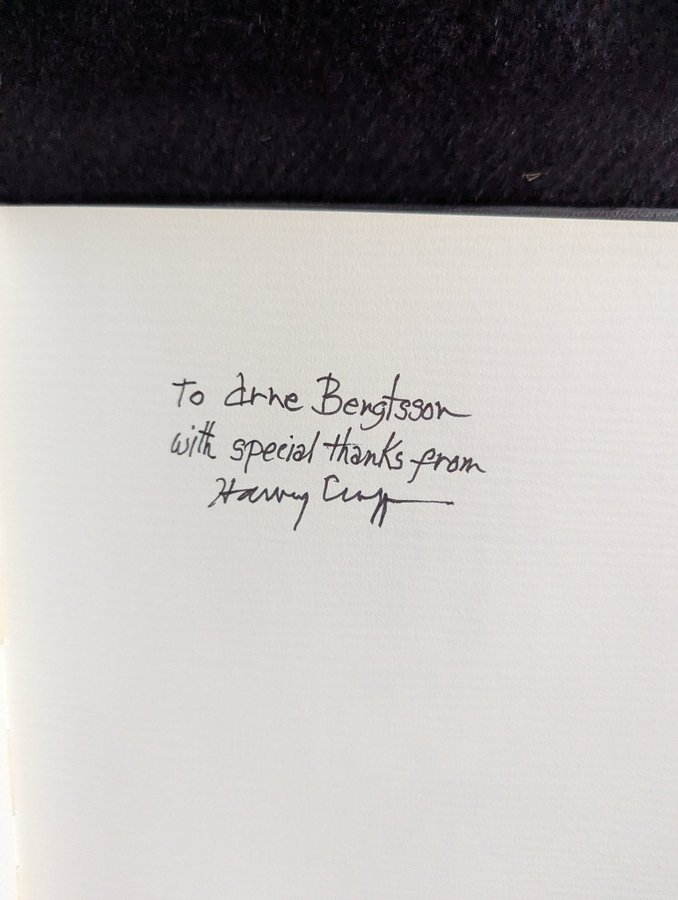 To Arne Bengtsson
with special thanks from
Harvey Cropp